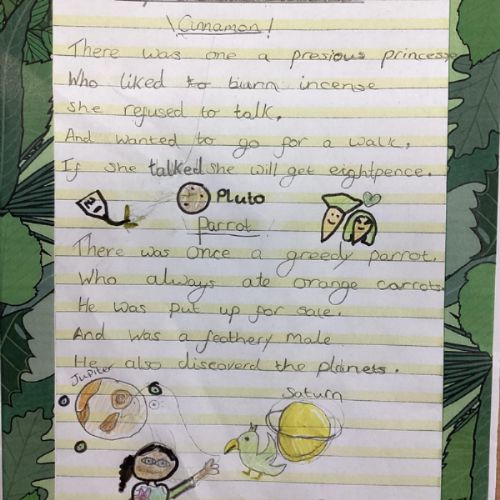 Cinnamon!
There was one a presious princess
Who liked to burn incense
She refused to talk,
And wanted to go for a walk,
If she talked she will get eightpence.
Pluto
Parrot
There was once a greedy parrot,
Who always ate orange carrots.
He was put up for sale,
And was a feathery male
He also discoverd the planets.
Jupiter
Saturn